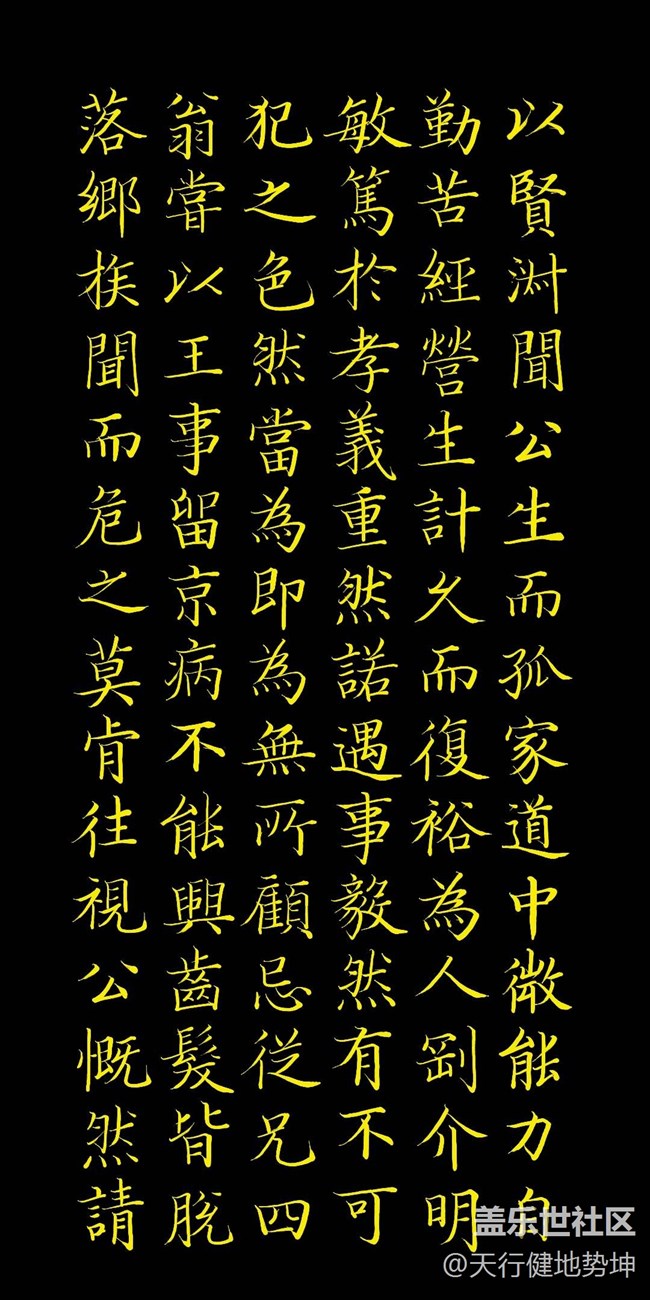 以賢淵聞公生而孤家道中微能力自
勤苦經營生計久而復裕為人剛介明
敏篤於孝義重然諾遇事毅然有不可
犯之色然當為即為無所顧忌從兄四
翁嘗以王事留京病不能興齒髮皆脫
落鄉族聞而危之莫肯往視公慨然請
盖乐世社区
@天行健地势坤